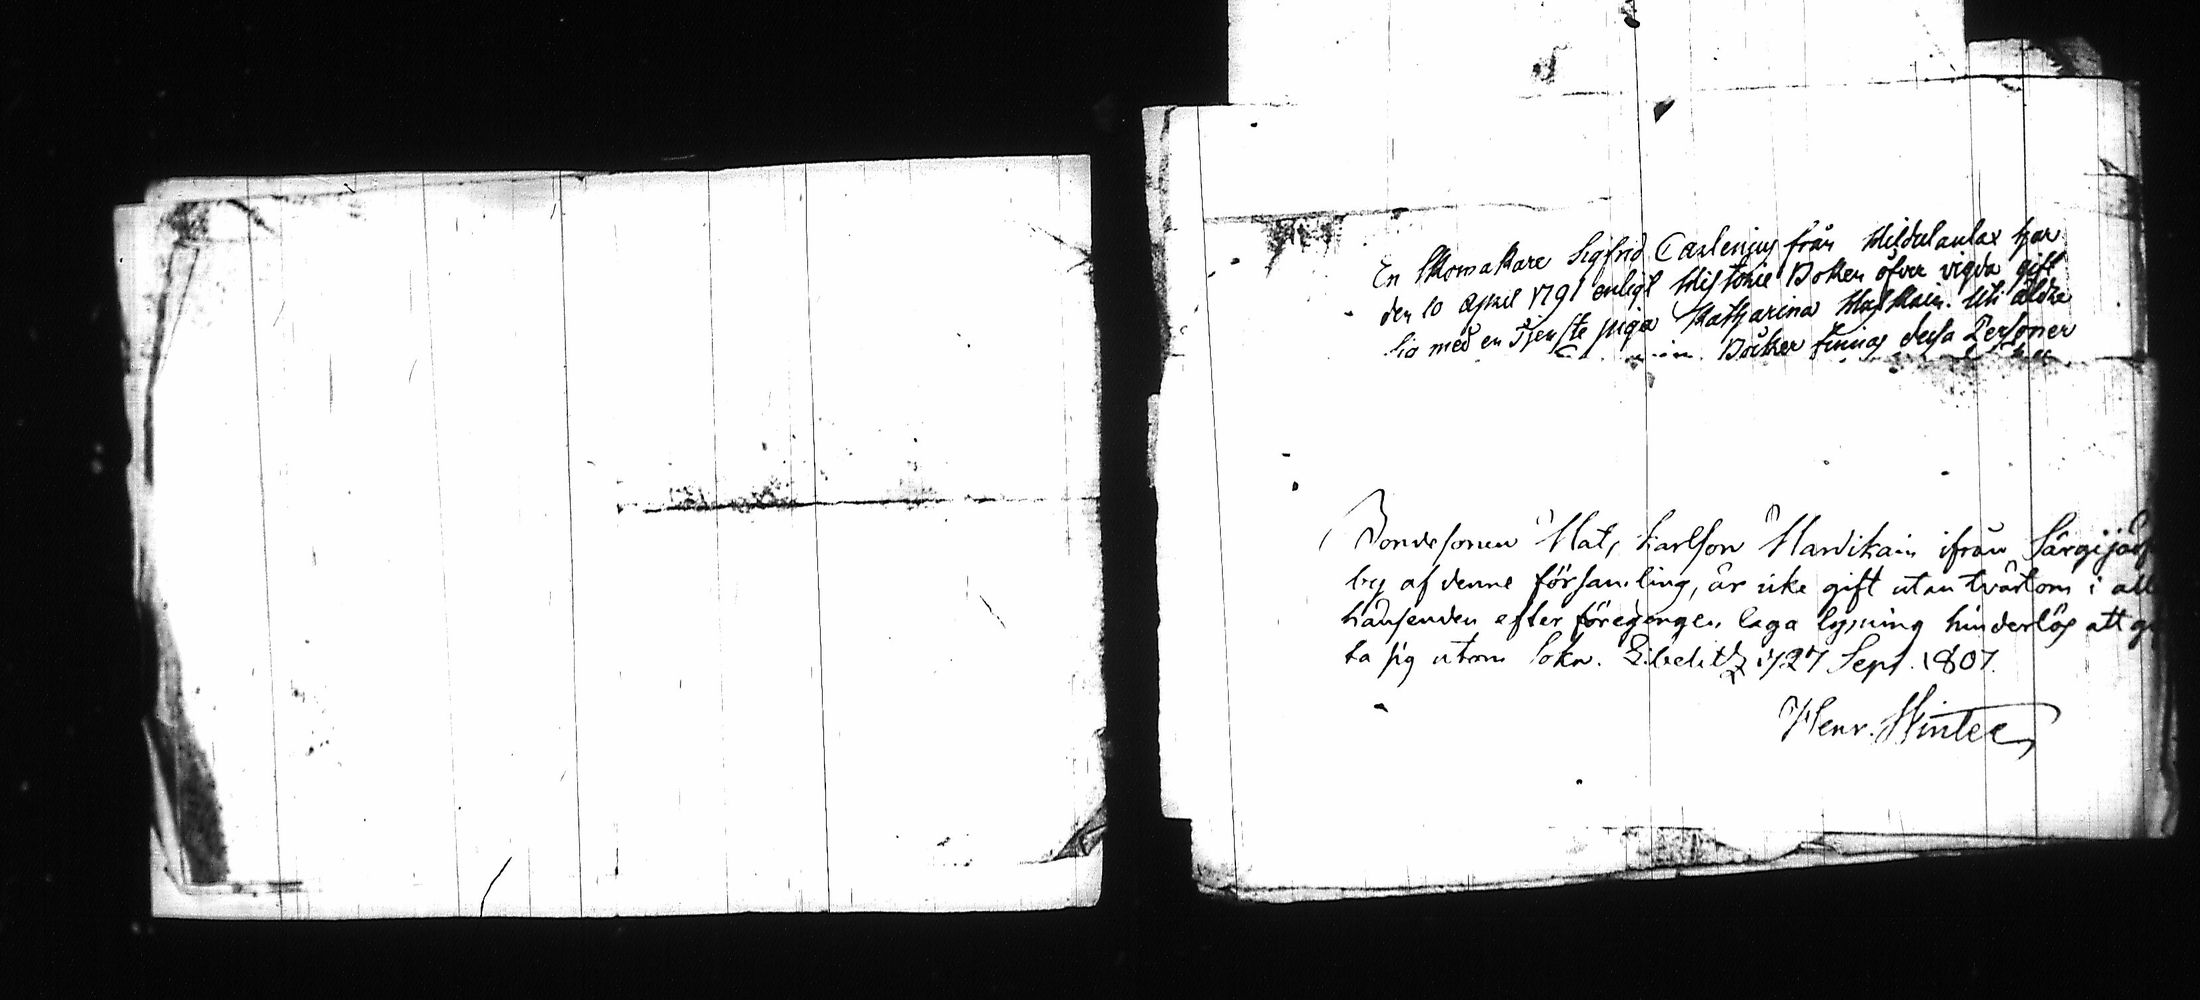 En Skomakare Sigfrid Carlenius från Hildulanlax har
den 10 April 1791 enligt Historie Boken öfver vigda gift
sig med en Tjenste piga Katharina Maskain. Uti äldre
Böcker finnas dessa Personer
Bondesonen Mats Karlson Havikain ifrån Särgijärf
by af denne församling, är icke gift utan tvärtom i all
hänseenden efter föregången laga lysning hinderlös att gi
ta sig utom Sokn. Libelitz 27 Sept. 1807.
Henr. Winter